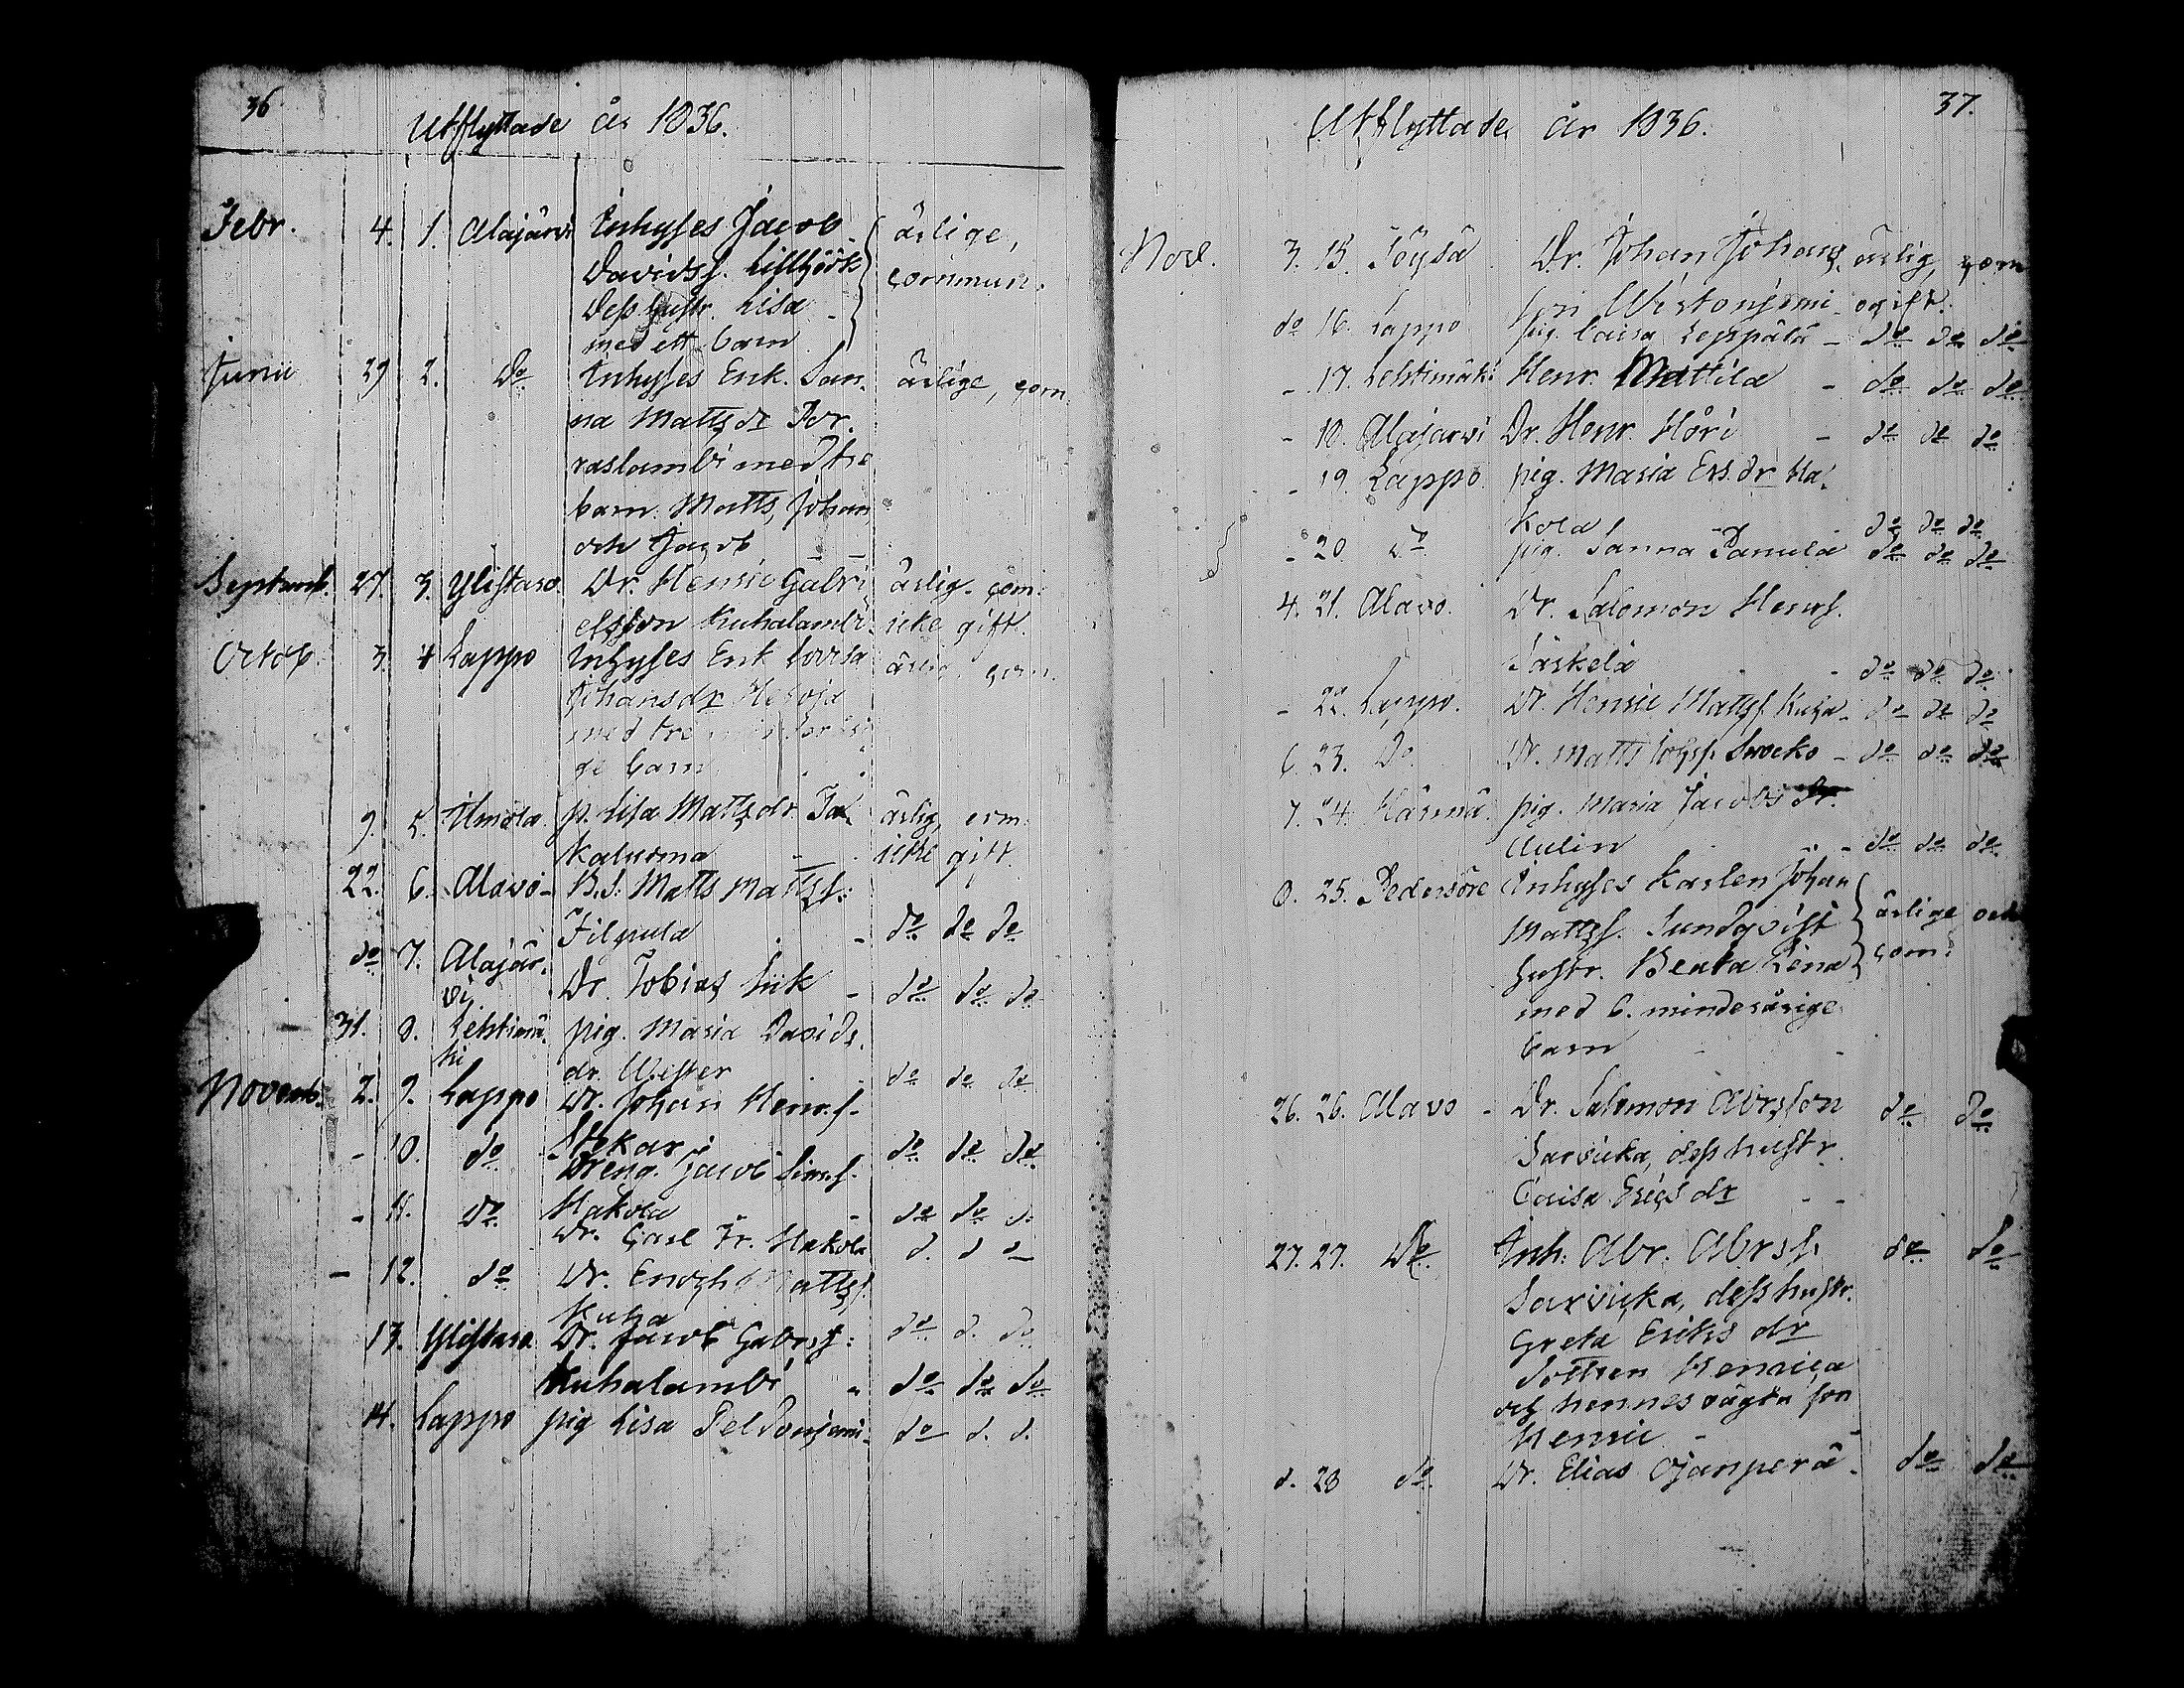 36
Utflyttade år 1836.
Febr. 4. 1. Alajärvi Inhyses Jacob ärlige,
Davidss. Lillbjörk commun.
dess hustr. Lisa
med ett barn
Junii 29 2. do Inhyses Enk. San- ärlige, com.
na Mattsdr Por-
raslambi med tre
barn Matts, Johan
och Jacob
Septemb. 27. 3. Ylistaro Dr. Henric Gabri- ärlig. com.
elsson Kuhalambi icke gift.
Octob. 3. 4 Lappo Inhyses Enk. Lovisa ärlig. com.
Johansdr
med tre
ge barn
9. 5. Ilmola p. Lisa Mattsdr. ärlig, com.
icke gift
22. 6. Alavo B.S. Matts Mattss.
Filpula do do do
do 7. Alajär-
vi. Dr. Tobias Liik do do do
31. 8. Lehtimä- pig. Maria Davids-
ki dr. Wester do do do
Novemb. 2. 9. Lappo Dr. Johan Henr.s.
do do do
- 10. do Dreng. Jacob Sims.
Hakola do do do
- 11. do Dr. Carl Fr. Hakola d. d d
- 12. do Dr. Enoch Mattss.
Kuha do d. do
13. Ylistaro Dr. Jacob Gabr.s.
Kuhalambi do do do
14. Lappo pig Lisa Peldoniemi do d. d.
37.
Utflyttade år 1836.
Nov. 3. 15. Töysä Dr. Johan Johans- ärlig, com
son ogift.
do 16. Lappo pig. Caisa Leppälä do do do
- 17. Lehtimäki Henr. Mattila do do do
- 18. Alajärvi Dr. Henr. do do do
- 19. Lappo pig. Maria Ers.dr Ha-
kola do do do
- 20 do pig. Sanna Panula do do do
4. 21. Alavo. Dr. Salomon Henrs.
do do do
- 22. Lappo. Dr. Henric Mattss. Kuha do do do
6. 23. Do Dr. Matts do do do
7. 24. pig. Maria Jacobs dr.
Aulin do do do
8. 25. Pedersöre Inhyses Karlen Johan
Mattss. Sundqvist ärlige och
hustr. Beata Lena com.
med 6. minderårige
barn
26. 26. Alavo Dr. Salomon Abrsson do do
Sarvicka, dess hustr.
Caisa Ericsdr
27. 27. Do Inh. Abr. Abrss. do do
Sarvicka, dess hustr.
Greta Eriks dr
dottren Henrica
och hennes oägta son
Henric
d. 28 do. Dr. Elias Ojanperä do do